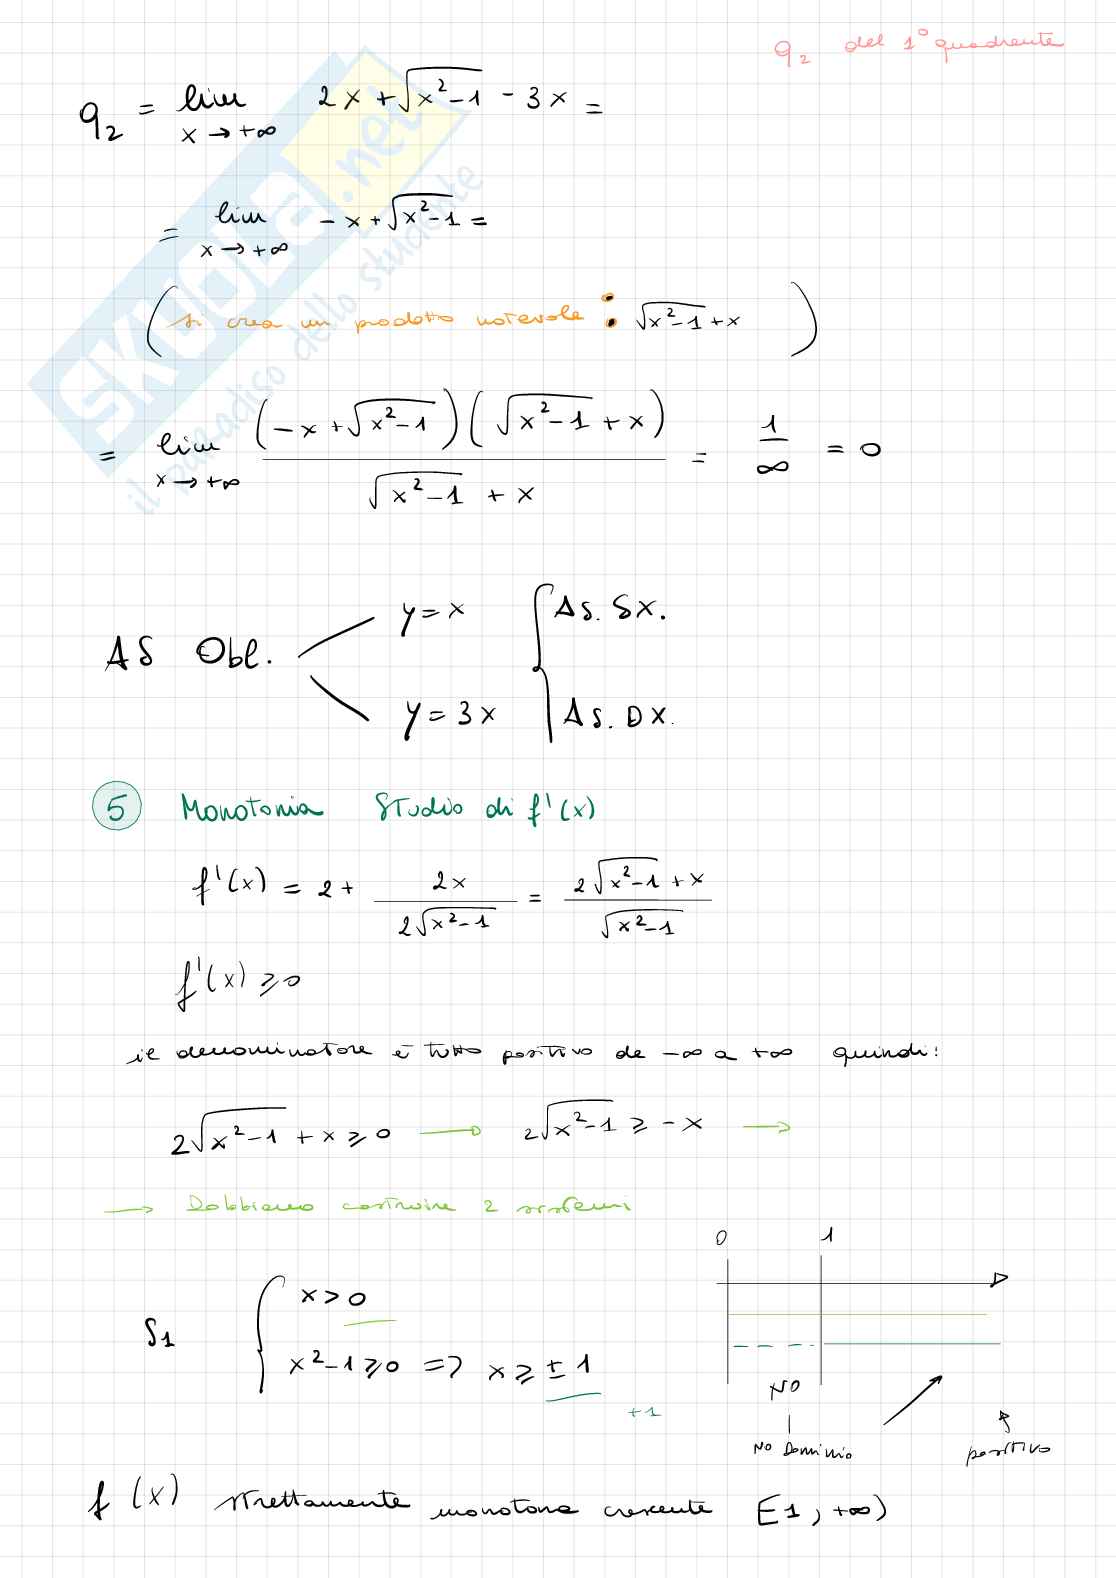 q₂ del 1° quadrante
q₂ = lim x→+∞ 2x + √(x²-1) - 3x =
= lim x→+∞ -x + √(x²-1) =
( si crea un prodotto notevole : √(x²-1) + x )
= lim x→+∞ (-x + √(x²-1)) (√(x²-1) + x) / (√(x²-1) + x) = 1/∞ = 0
AS Obl.
y = x As. Sx.
y = 3x As. Dx.
5 Monotonia Studio di f'(x)
f'(x) = 2 + 2x / (2√(x²-1)) = (2√(x²-1) + x) / √(x²-1)
f'(x) ⩾ 0
il denominatore è tutto positivo da -∞ a +∞ quindi:
2√(x²-1) + x ⩾ 0 → 2√(x²-1) ⩾ -x →
→ Dobbiamo costruire 2 sistemi
0 1
S1 { x > 0
x²-1 ⩾ 0 => x ⩾ ±1
+1
NO
No Dominio
positivo
f(x) strettamente monotona crescente [1, +∞)
SKUOLA.net
il paradiso dello studente